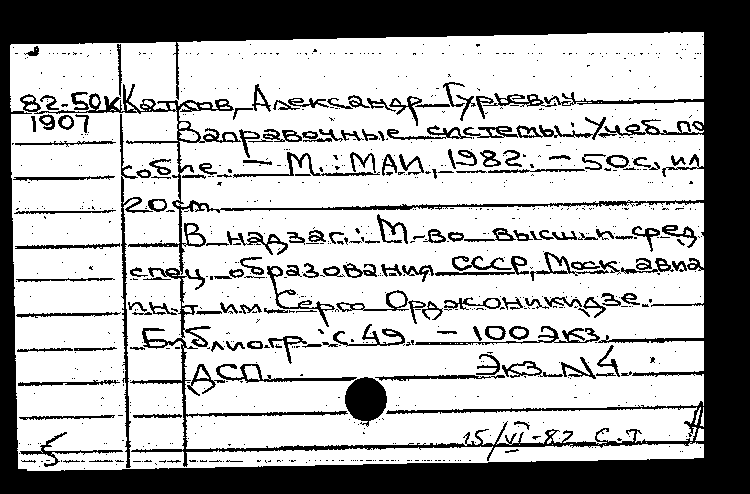 82-50К Катков, Александр Гурьевич
1907 Заправочные системы: Учеб. по
собие. — М.: МАИ, 1982. — 50с., ил
20см.
В надзаг.: М-во высш. и сред.
спец. образования СССР, Моск. авиа
ин-т им. Серго Орджоникидзе.
Библиогр.: с. 49. — 100 экз.
ДСП. Экз N4
15/VI-82 С.Т
5